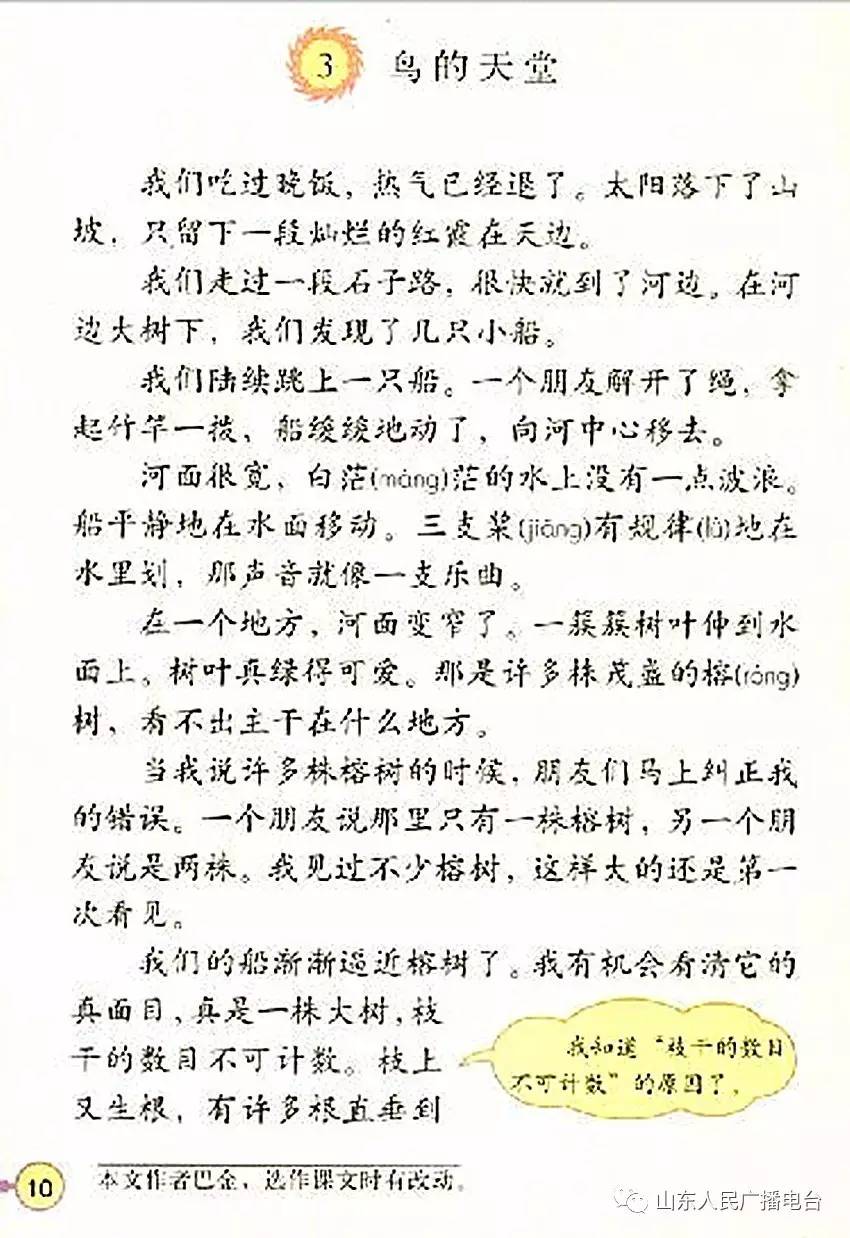 3 鸟的天堂
我们吃过晚饭，热气已经退了。太阳落下了山
坡，只留下一段灿烂的红霞在天边。
我们走过一段石子路，很快就到了河边。在河
边大树下，我们发现了几只小船。
我们陆续跳上一只船。一个朋友解开了绳，拿
起竹竿一拨，船缓缓地动了，向河中心移去。
河面很宽，白茫(máng)茫的水上没有一点波浪。
船平静地在水面移动。三支桨(jiǎng)有规律(lǜ)地在
水里划，那声音就像一支乐曲。
在一个地方，河面变窄了。一簇簇树叶伸到水
面上。树叶真绿得可爱。那是许多株茂盛的榕(róng)
树，看不出主干在什么地方。
当我说许多株榕树的时候，朋友们马上纠正我
的错误。一个朋友说那里只有一株榕树，另一个朋
友说是两株。我见过不少榕树，这样大的还是第一
次看见。
我们的船渐渐逼近榕树了。我有机会看清它的
真面目，真是一株大树，枝
干的数目不可计数。枝上
又生根，有许多根直垂到
我知道“枝干的数目
不可计数”的原因了。
本文作者巴金，选作课文时有改动。
10
山东人民广播电台